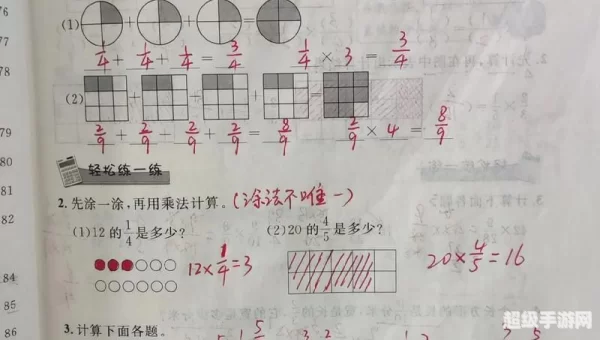 76
77
78
79
80
82
84
85
86
(1) + + =
1/4 + 1/4 + 1/4 = 3/4 1/4 × 3 = 3/4
(2) + + + =
2/9 + 2/9 + 2/9 + 2/9 = 8/9 2/9 × 4 = 8/9
轻松练一练
2.先涂一涂,再用乘法计算。(涂法不唯一)
(1)12的1/4是多少? (2)20的4/5是多少?
12×1/4=3 20×4/5=16
3.计算下面各题。
超级手游网